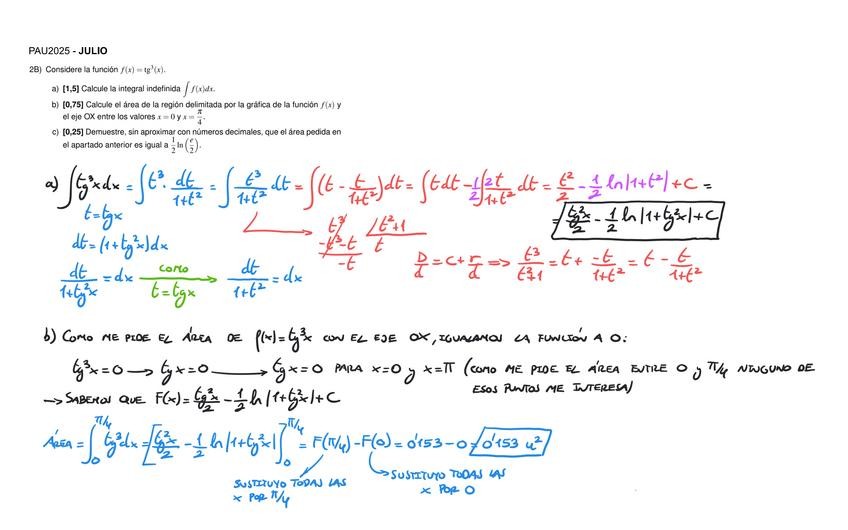 PAU2025 - JULIO
2B) Considere la función f(x) = tg³(x).
a) [1,5] Calcule la integral indefinida ∫ f(x)dx.
b) [0,75] Calcule el área de la región delimitada por la gráfica de la función f(x) y
el eje OX entre los valores x = 0 y x = π/4.
c) [0,25] Demuestre, sin aproximar con números decimales, que el área pedida en
el apartado anterior es igual a 1/2 ln(e/2).
a) ∫tg³x dx = ∫t³· dt/(1+t²) = ∫ t³/(1+t²) dt = ∫(t - t/(1+t²))dt = ∫t dt - 1/2 ∫ 2t/(1+t²) dt = t²/2 - 1/2 ln|1+t²| + C =
= tg²x/2 - 1/2 ln|1+tg²x| + C
t = tgx
dt = (1+tg²x)dx
dt/(1+tg²x) = dx como t = tgx → dt/(1+t²) = dx
t³ | t²+1
-t³-t t
-t
D/d = c + r/d ⇒ t³/(t²+1) = t + -t/(1+t²) = t - t/(1+t²)
b) COMO ME PIDE EL ÁREA DE f(x)=tg³x CON EL EJE OX, IGUALAMOS LA FUNCIÓN A 0:
tg³x=0 → tgx=0 → tgx=0 PARA x=0 y x=π (COMO ME PIDE EL ÁREA ENTRE 0 y π/4 NINGUNO DE
ESOS PUNTOS ME INTERESA)
→ SABEMOS QUE F(x)= tg²x/2 - 1/2 ln|1+tg²x|+C
ÁREA = ∫₀^π/4 tg³dx = [tg²x/2 - 1/2 ln|1+tg²x|]₀^π/4 = F(π/4) - F(0) = 0'153 - 0 = 0'153 u²
SUSTITUYO TODAS LAS
x POR π/4
SUSTITUYO TODAS LAS
x POR 0